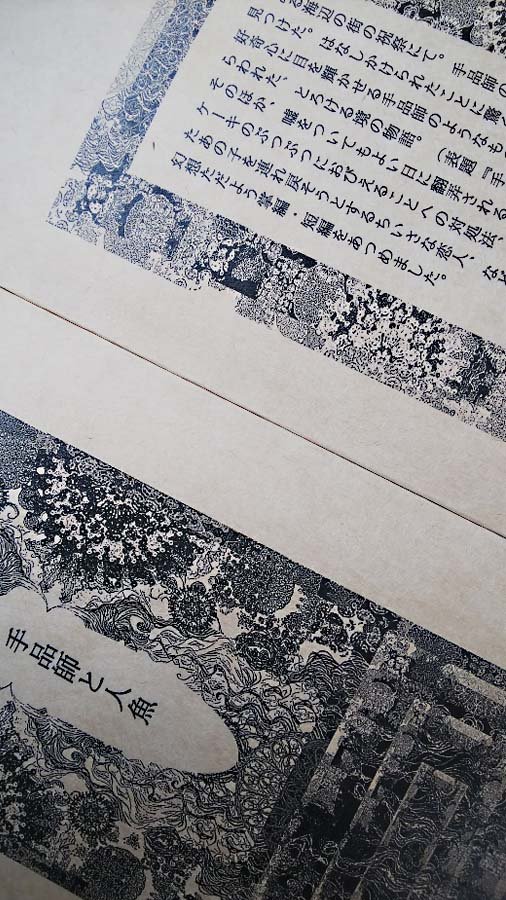 海辺の街の祝祭にて。手品師の
見つけた。はなしかけられたことに驚
好奇心に目を輝かせる手品師のようなも
らわれた、とろける魂の物語　（表題『手
そのほか、嘘をついてもよい日に翻弄される
ケーキのぶつぶつにおびえることへの対処法、
たあの子を連れ戻そうとするちいさな恋人、な
幻想ただよう掌編・短編をあつめました。
手品師と人魚